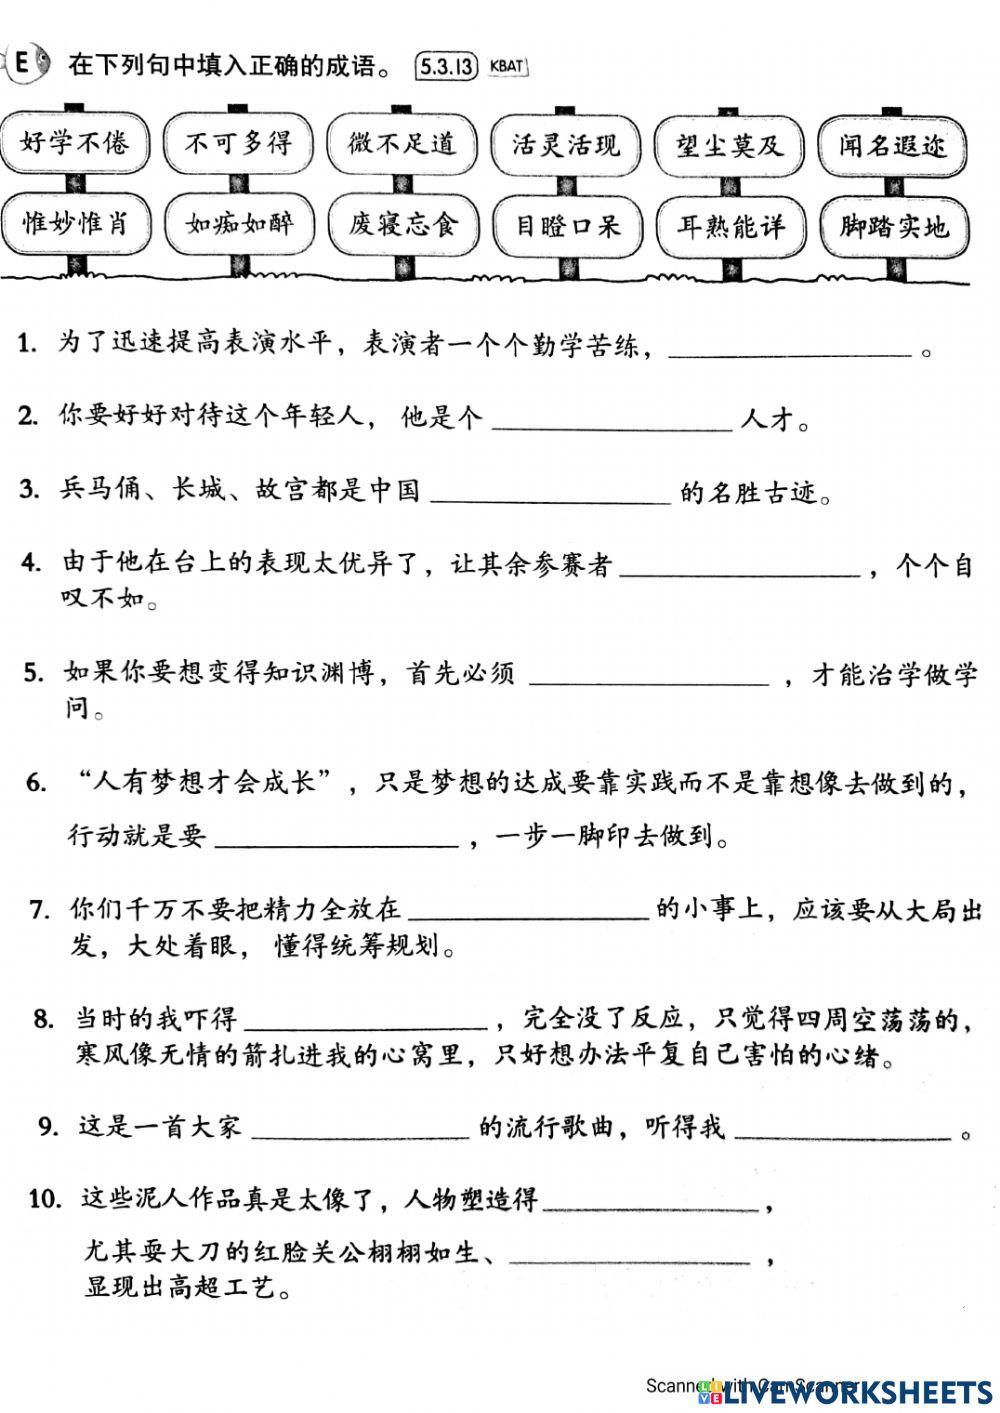 E 在下列句中填入正确的成语。 5.3.13 KBAT
好学不倦 不可多得 微不足道 活灵活现 望尘莫及 闻名遐迩
惟妙惟肖 如痴如醉 废寝忘食 目瞪口呆 耳熟能详 脚踏实地
1. 为了迅速提高表演水平，表演者一个个勤学苦练，____________。
2. 你要好好对待这个年轻人， 他是个 ____________ 人才。
3. 兵马俑、长城、故宫都是中国 ____________ 的名胜古迹。
4. 由于他在台上的表现太优异了，让其余参赛者 ____________ ，个个自
叹不如。
5. 如果你要想变得知识渊博，首先必须 ____________ ，才能治学做学
问。
6. “人有梦想才会成长”，只是梦想的达成要靠实践而不是靠想像去做到的，
行动就是要 ____________ ，一步一脚印去做到。
7. 你们千万不要把精力全放在 ____________ 的小事上，应该要从大局出
发，大处着眼， 懂得统筹规划。
8. 当时的我吓得 ____________ ，完全没了反应，只觉得四周空荡荡的，
寒风像无情的箭扎进我的心窝里，只好想办法平复自己害怕的心绪。
9. 这是一首大家 ____________ 的流行歌曲，听得我 ____________ 。
10. 这些泥人作品真是太像了，人物塑造得 ____________ ，
尤其耍大刀的红脸关公栩栩如生、 ____________ ，
显现出高超工艺。
Scanned with CamScanner
LIVEWORKSHEETS